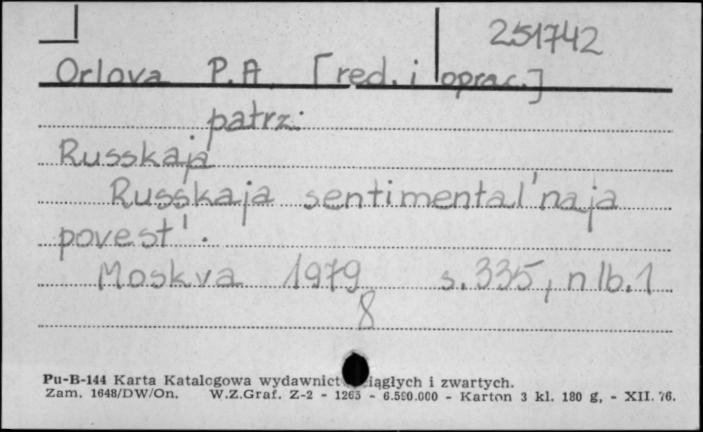 251742
Orlova P.A. [red. i oprac.]
patrz:
Russkaja
Russkaja sentimental'naja
povest'.
Moskva 1979 s. 335, nlb. 1
8
Pu-B-144 Karta Katalogowa wydawnict ciągłych i zwartych.
Zam. 1648/DW/On. W.Z.Graf. Z-2 - 1265 - 6.590.000 - Karton 3 kl. 180 g, - XII. 76.